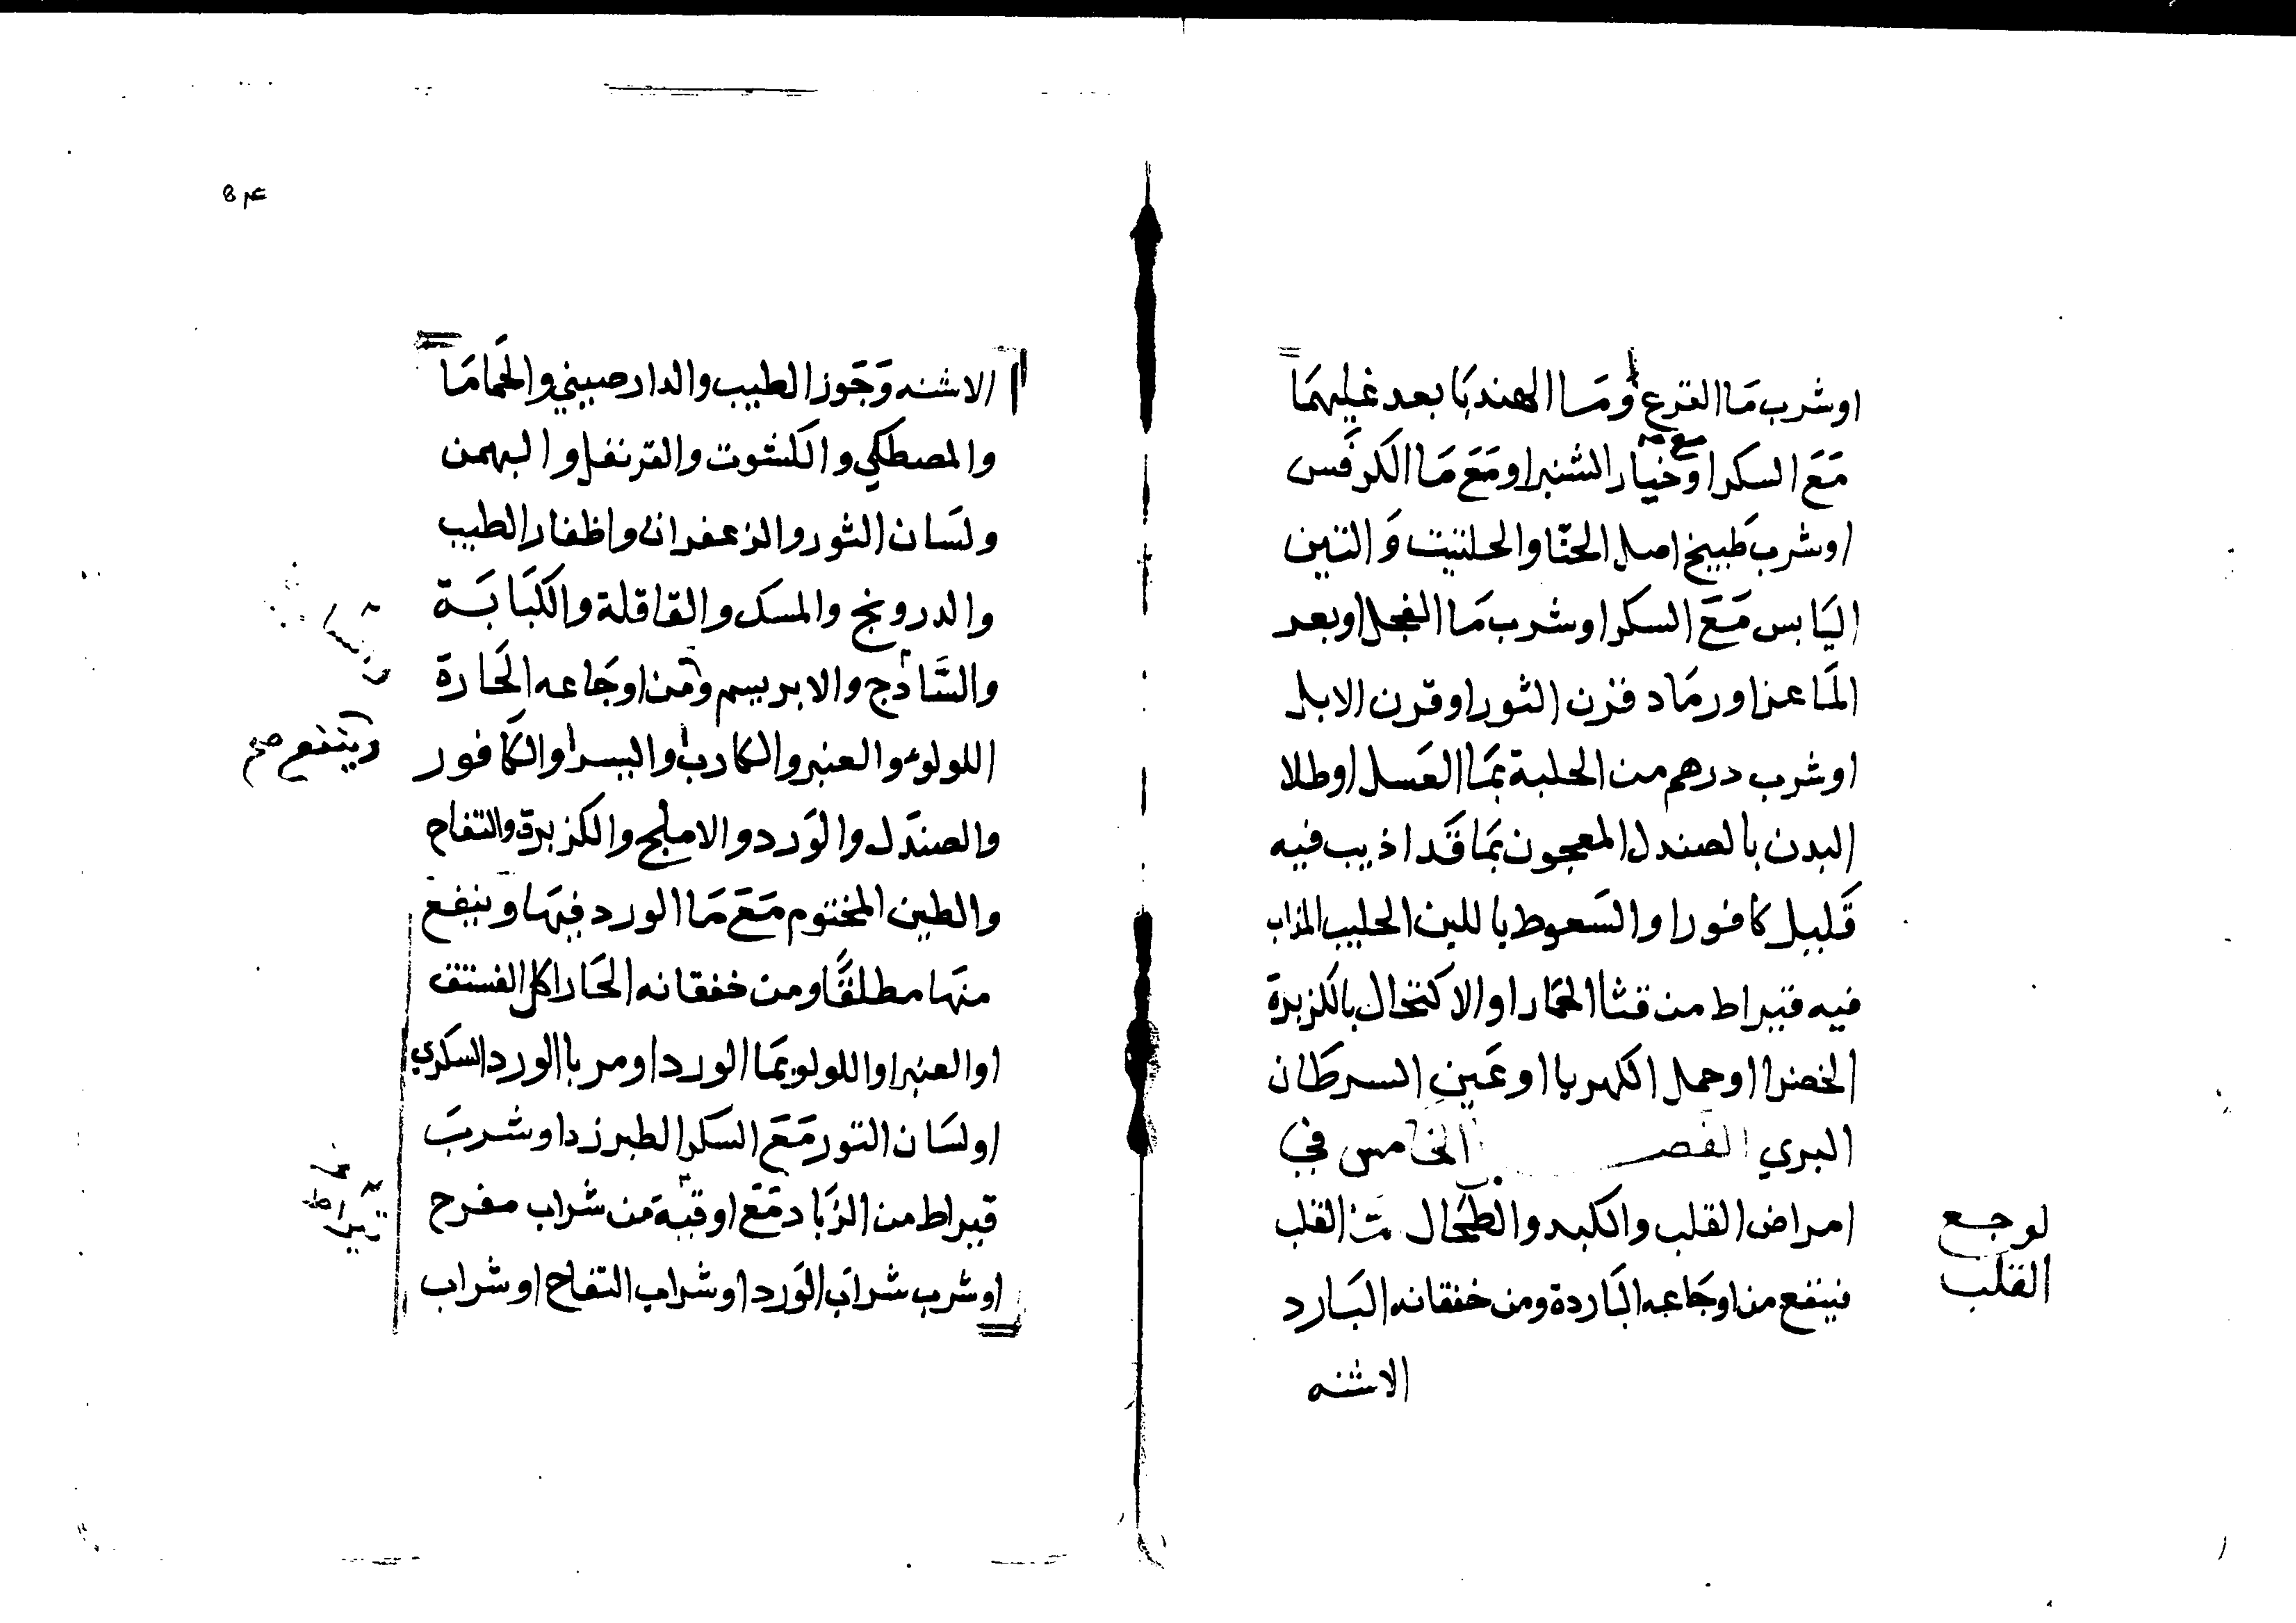 اوشرب مَا القرع اومَا الهندبَا بعد غليهمَا
مَعَ السكر اومع خيار الشنبر اومَعَ مَا الكرفس
اوشرب طبيخ اصل الحثا والحلتيت وَالتين
اليَابس مَعَ السكر اوشرب مَا الفجل اوبعر
المَاعز اورمَاد قرن الثور اوقرن الايل
اوشرب درهم من الحلبة بمَا العَسل اوطلا
البدن بالصندل المعجون بمَا قَد اذيب فيه
قَليل كافور او السَعوط باللبن الحليب المذاب
فيه قيراط من قثا الحمَار او الاكتحال بالكزبرة
الخضرا اوحمل الكهربا اوعَين السرطَان
البري الفصـــل الخامس في
امراض القلب والكبد والطحَال القلب
فينفع من اوجَاعه البَاردة ومن خفقانه البَارد
الاشنه
لوجع
القلب
الاشنه وَجَوز الطيب والدارصيني والحَمامَا
والمصطكي والكشوت والقرنفل والبهمن
ولسَان الثور والزعفران واظفار الطيب
والدرونج والمسك والقاقلة والكبَابَة
والسَّاذج والابريسم ومن اوجَاعه الحَارة
اللولوء والعنبر والكادي والبسر والكافور
والصندَل والوَرد والاملج والكزبرة والتفاح
والطين المختوم مَعَ مَا الورد فيهَا وينفع
منهَا مطلقًا ومن خفقانه الحَار اكل الفستق
اوالعنبر اواللولو بمَا الورد اومربا الورد السكري
اولسَان الثور مَعَ السكر الطبرزد اوشربَ
قيراط من الزبَاد مَعَ اوقية من شراب مفرح
اوشرب شراب الوَرد اوشراب التفاح اوشراب
وينفع صح
قيراط